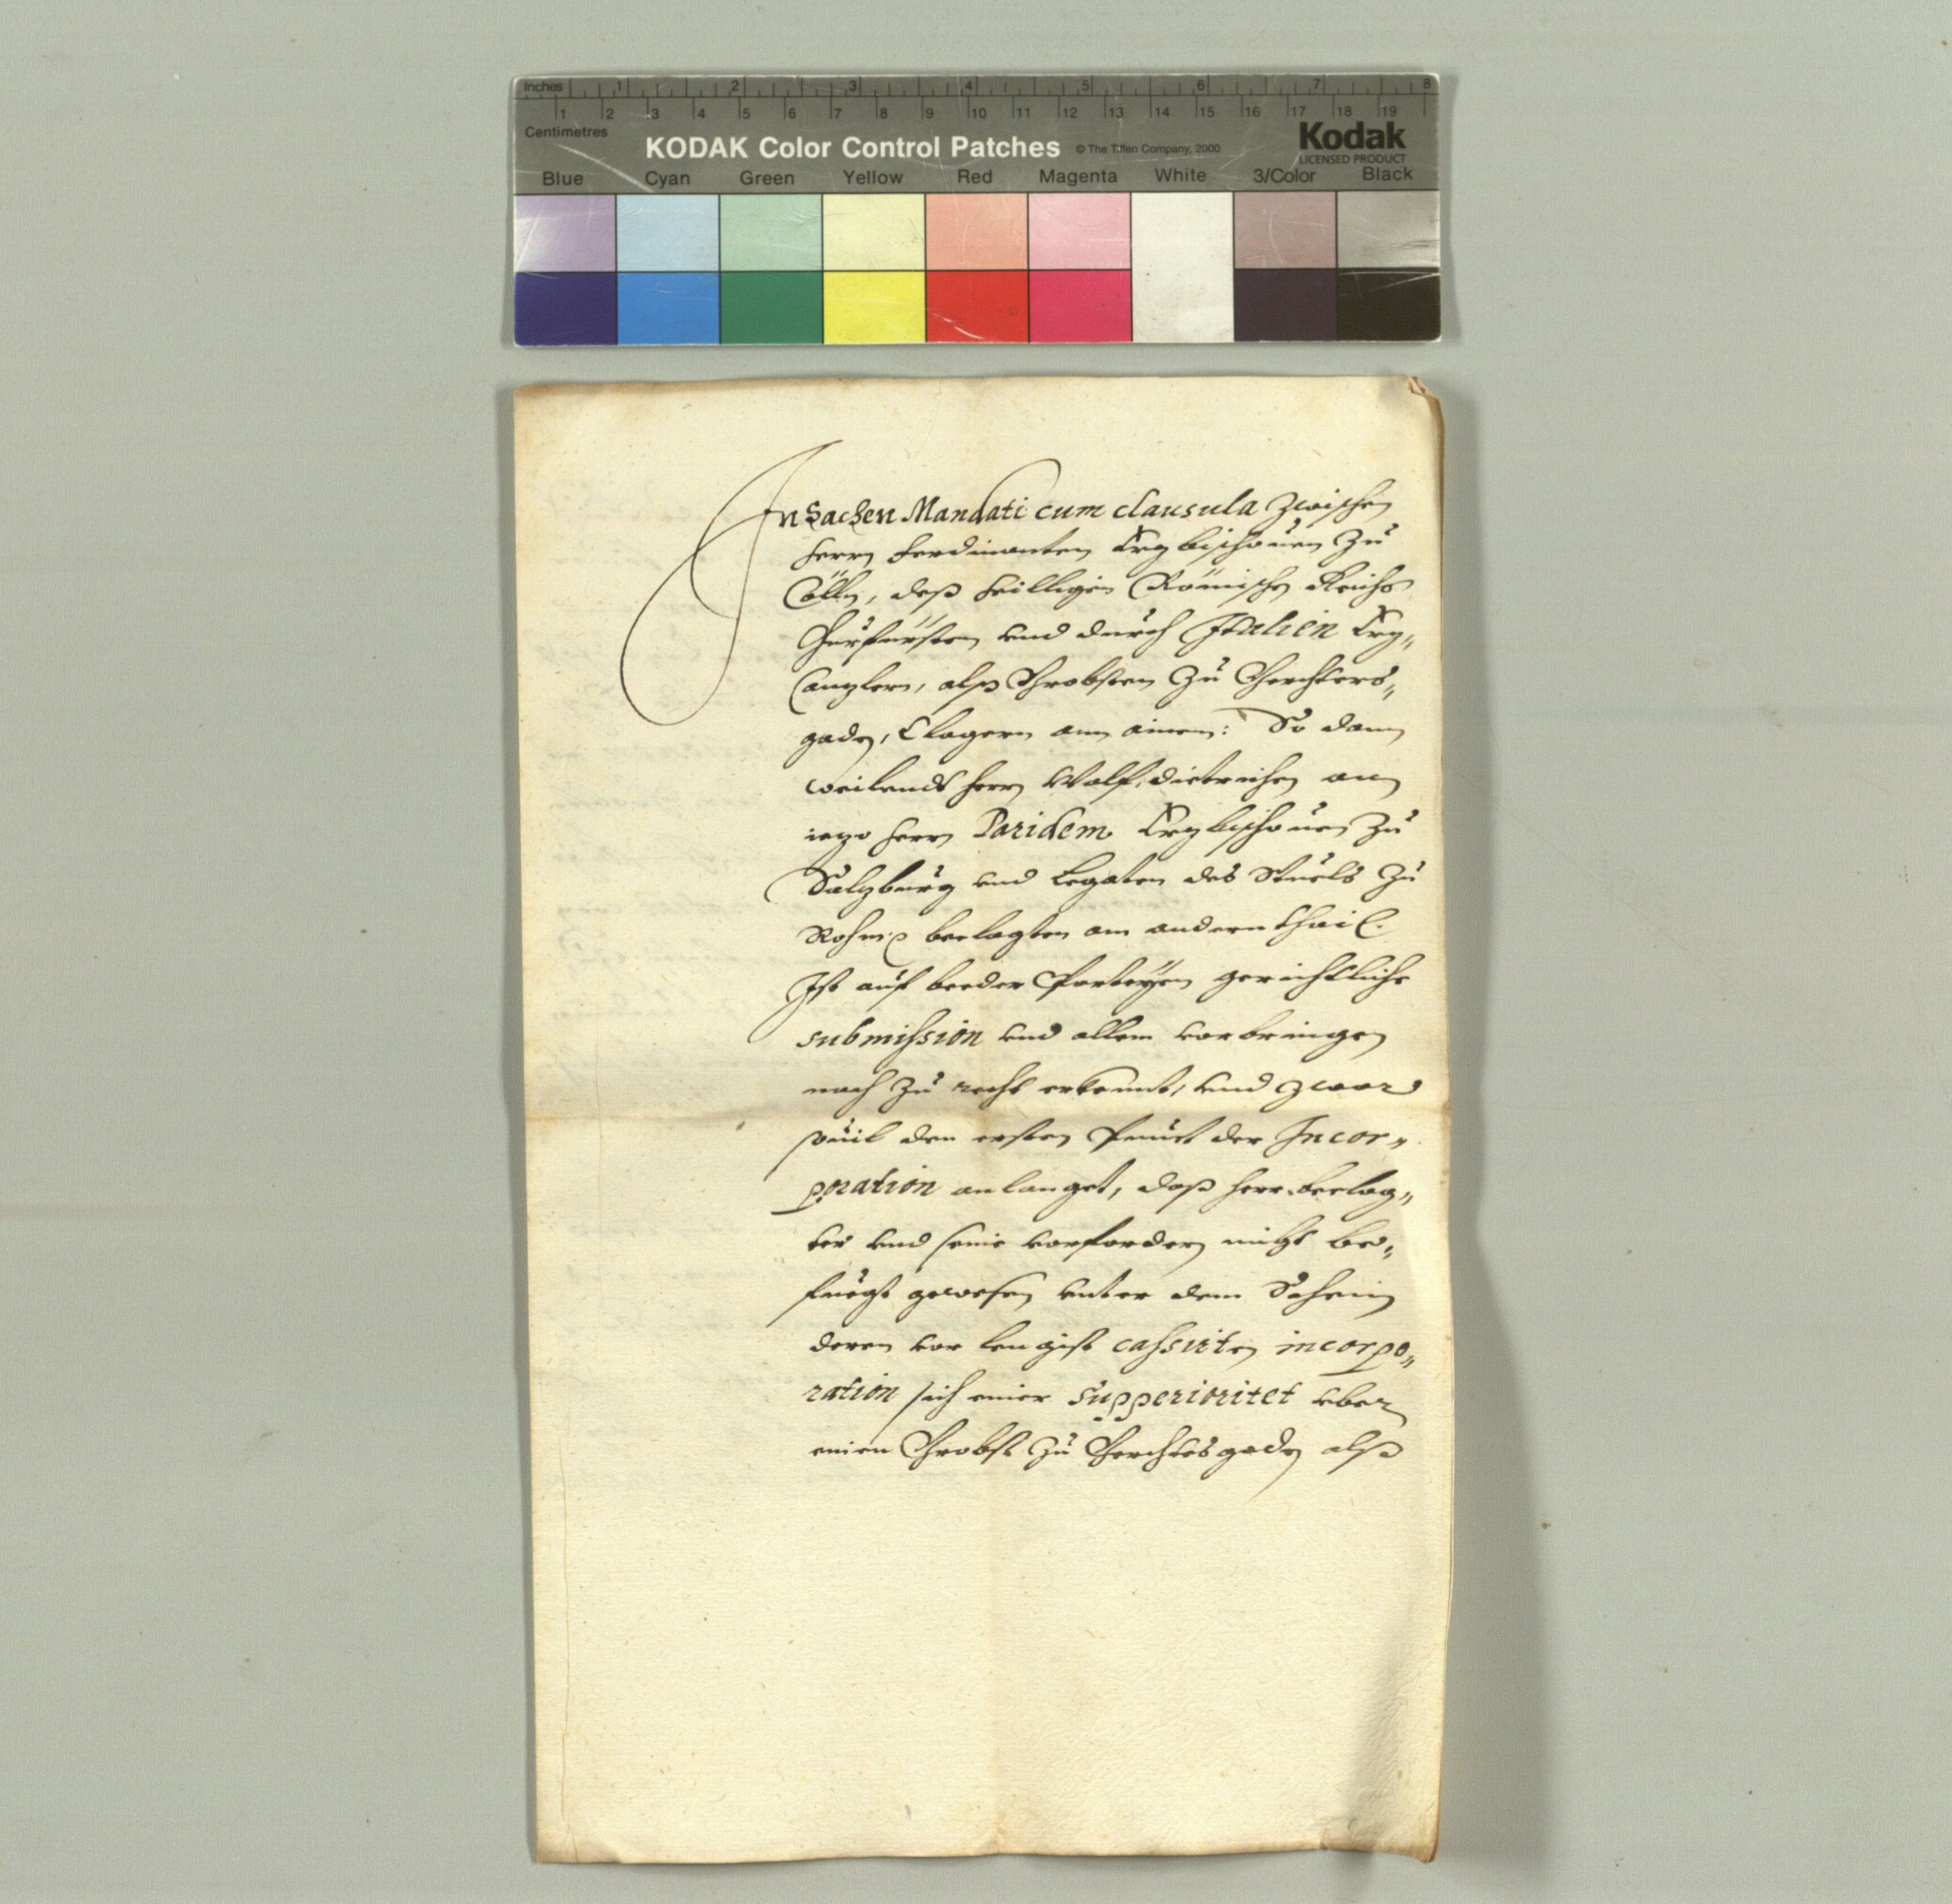 Inches 1 2 3 4 5 6 7 8
1 2 3 4 5 6 7 8 9 10 11 12 13 14 15 16 17 18 19
Centimetres
KODAK Color Control Patches © The Tiffen Company, 2000 Kodak
LICENSED PRODUCT
Blue Cyan Green Yellow Red Magenta White 3/Color Black
In Sachen Mandati cum clausula zwischen
Herrn Ferdinanten Erzbischouen zu
Cölln, deß heilligen Römischen Reichs
Churfürsten vnd durch Italien Erz„
Canzlern, alß Probsten zu Perchters„
gaden, Clagern am ainen: So dann
weilendt herrn Wolf dietrichen an
iezo herrn Paridem Erzbischouen zu
Salzburg vnd Legaten des Stuels zu
Rohm beclagten am andern thail.
Ist auf beeder Parteyen gerichtliche
submission vnd allem vorbringen
nach zu recht erkennt, vnd zwar
souil den ersten Punct der Incor„
poration anlanget, daß herr beclag„
ter vnd seine vorfordern nicht be„
fuegt gewesen vnter dem Schein
deren vor lengist cassirten incorpo„
ration sich einer supperioritet vber
einen Probst zu Perchtesgaden alß